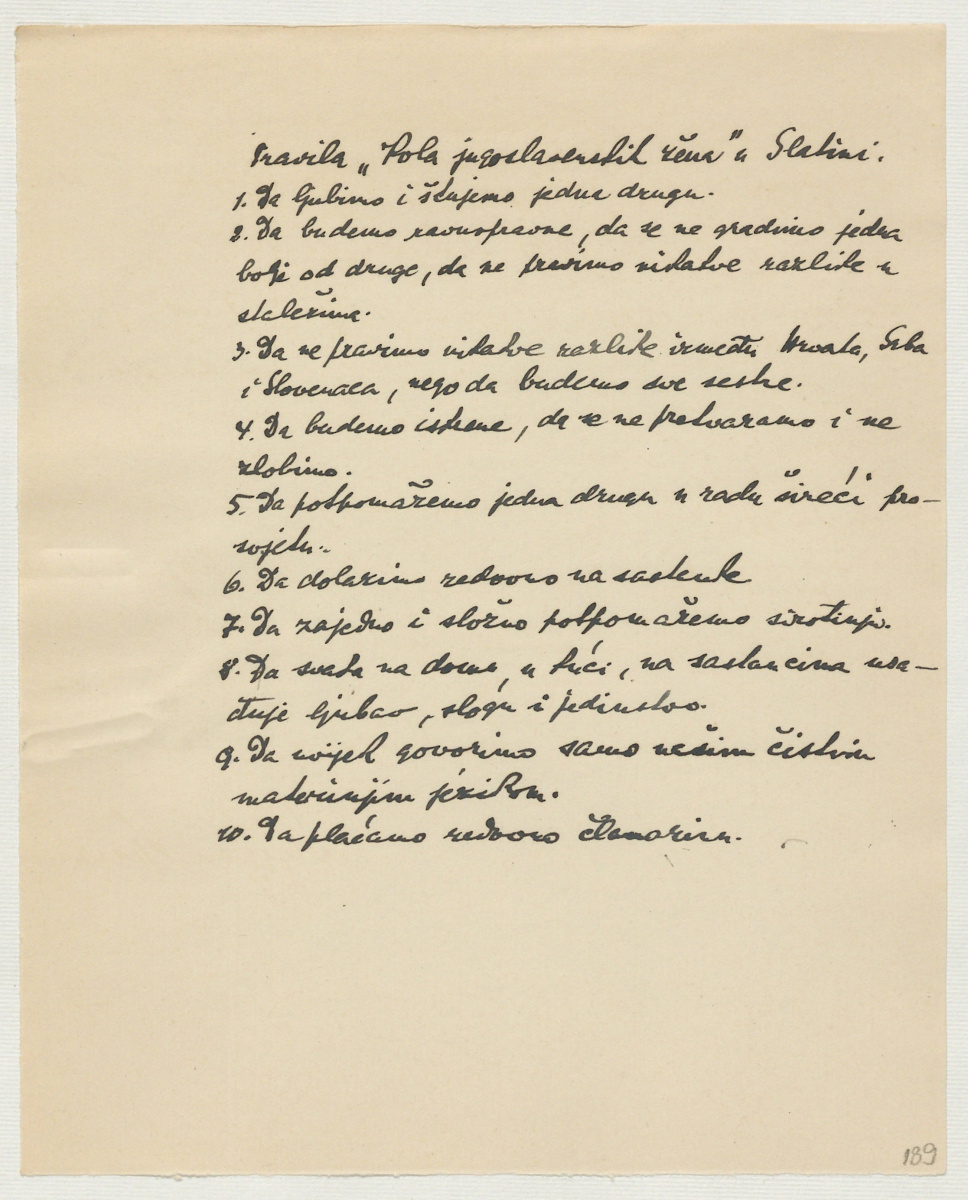 Pravila „Kola jugoslavenskih žena" u Slatini.
1. Da ljubimo i štujemo jedna drugu.
2. Da budemo ravnopravne, da se ne gradimo jedna
bolji od druge, da ne pravimo nikakve razlike u
staležima.
3. Da ne pravimo nikakve razlike između Hrvata, Srba
i Slovenaca, nego da budemo sve sestre.
4. Da budemo iskrene, da se ne pretvaramo i ne
zlobimo.
5. Da potpomažemo jedna drugu u radu šireći pro-
svjetu.
6. Da dolazimo redovno na sastanke
7. Da zajedno i složno potpomažemo sirotinju.
8. Da svaka na domu, u kući, na sastancima usa-
đuje ljubav, slogu i jedinstvo.
9. Da uvijek govorimo samo našim čistim
materinjim jezikom.
10. Da plaćamo redovno članarinu.
189